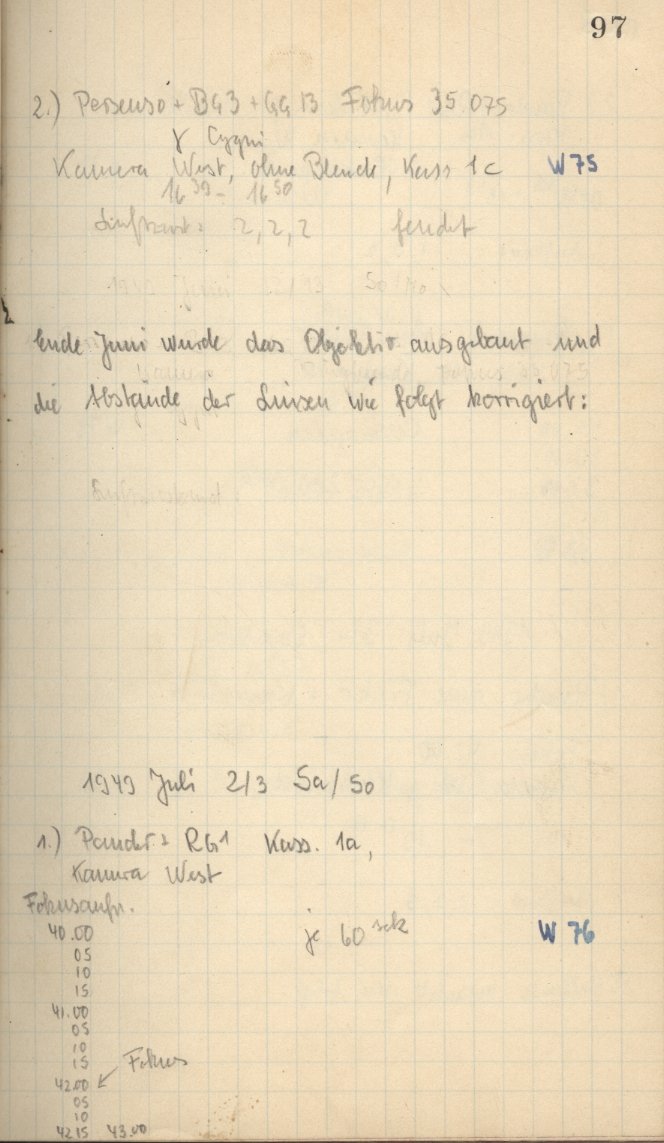 97
2.) Persenso + BG3 + GG 13 Fokus 35.075
γ Cygni
Kamera West, ohne Blende, Kass 1c W 75
16 39 - 16 50
2, 2, 2 feucht
Ende Juni wurde das Objektiv ausgebaut und
die Abstände der Linsen wie folgt korrigiert:
1949 Juli 2/3 Sa/So
1.) RG1 Kass. 1a,
Kamera West
Fokusaufn.
40.00 je 60 sek W 76
05
10
15
41.00
05
10
15 Fokus
42.00
05
10
42 15 43.00